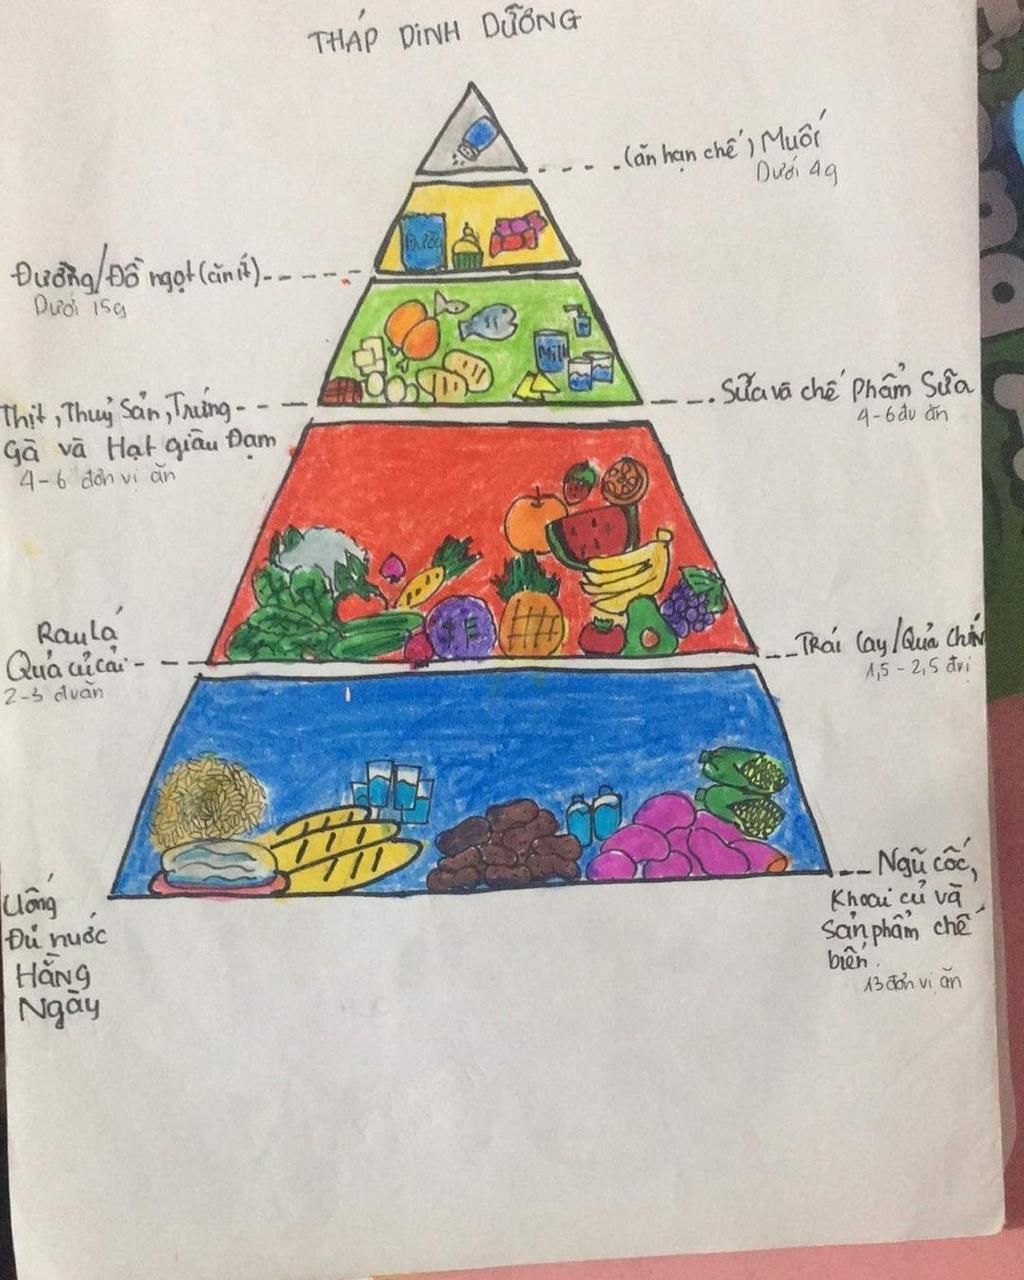 THÁP DINH DƯỠNG
(ăn hạn chế) Muối
Dưới 4g
Đường
Đường/Đồ ngọt (ăn ít)
Dưới 15g
Milk
Sữa và chế Phẩm Sữa
4-6 đv ăn
Thịt, Thuỷ Sản, Trứng
Gà và Hạt giàu Đạm
4-6 đơn vị ăn
Rau lá
Quả củ cải
2-3 đv ăn
Trái Cay/Quả Chín
1,5 - 2,5 đvị
Uống
Đủ nước
Hằng
Ngày
Ngũ cốc,
Khoai củ và
Sản phẩm chế
biến.
13 đơn vị ăn